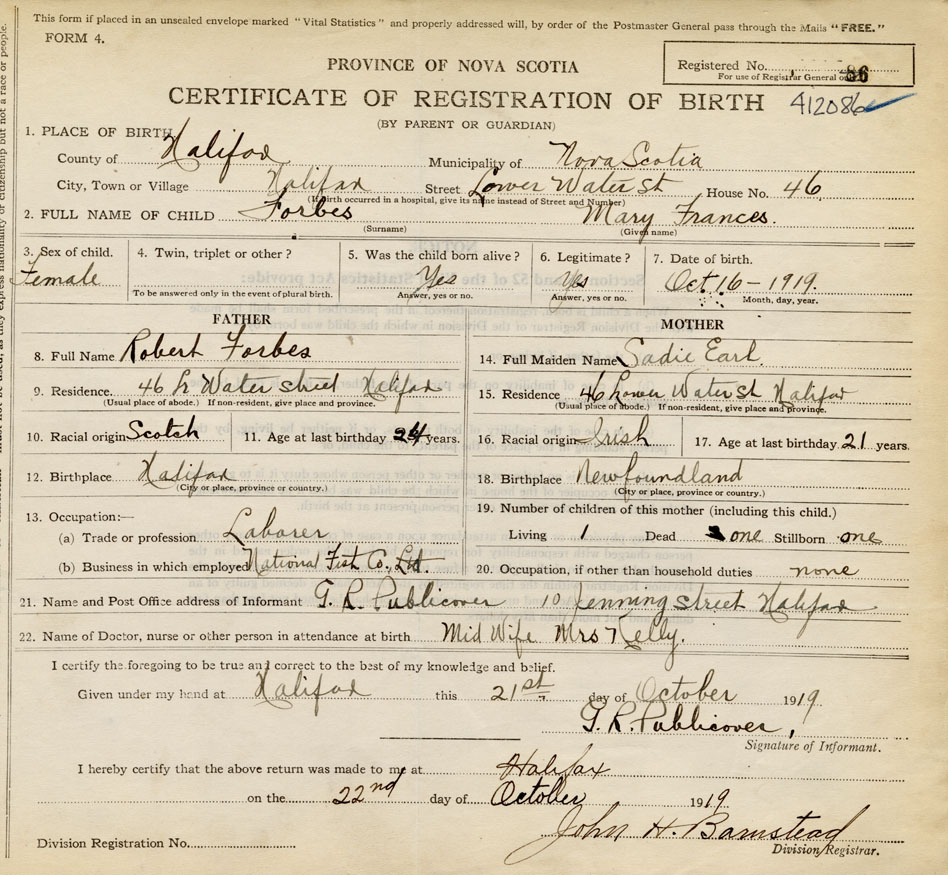 This form if placed in an unsealed envelope marked "Vital Statistics" and properly addressed will, by order of the Postmaster General pass through the Mails "FREE."
FORM 4.
Registered No. 86
For use of Registrar General only
PROVINCE OF NOVA SCOTIA
CERTIFICATE OF REGISTRATION OF BIRTH 412086
(BY PARENT OR GUARDIAN)
1. PLACE OF BIRTH
County of Halifax Municipality of Nova Scotia
City, Town or Village Halifax Street Lower Water St House No. 46
(If birth occurred in a hospital, give its name instead of Street and Number)
2. FULL NAME OF CHILD Forbes Mary Frances.
(Surname) (Given name)
3. Sex of child. 4. Twin, triplet or other? 5. Was the child born alive? 6. Legitimate? 7. Date of birth.
Female Yes Yes Oct 16 - 1919.
To be answered only in the event of plural birth. Answer, yes or no. Answer, yes or no. Month, day, year.
FATHER
8. Full Name Robert Forbes
9. Residence. 46 Lr Water street Halifax
(Usual place of abode.) If non-resident, give place and province.
10. Racial origin Scotch 11. Age at last birthday 24 years.
12. Birthplace Halifax
(City or place, province or country.)
13. Occupation:—
(a) Trade or profession. Laborer
(b) Business in which employed National Fish Co., Ltd.
MOTHER
14. Full Maiden Name Sadie Earl.
15. Residence 46 Lower Water St Halifax
(Usual place of abode.) If non-resident, give place and province.
16. Racial origin Irish 17. Age at last birthday 21 years.
18. Birthplace Newfoundland
(City or place, province or country.)
19. Number of children of this mother (including this child.)
Living 1 Dead one Stillborn one
20. Occupation, if other than household duties none
21. Name and Post Office address of Informant G. R. Publicover 10 street Halifax
22. Name of Doctor, nurse or other person in attendance at birth Mid Wife Mrs Kelly.
I certify the foregoing to be true and correct to the best of my knowledge and belief.
Given under my hand at Halifax this 21st day of October 1919.
G. R. Publicover,
Signature of Informant.
I hereby certify that the above return was made to me at Halifax
on the 22nd day of October 1919.
John H. Barnstead
Division Registrar.
Division Registration No.